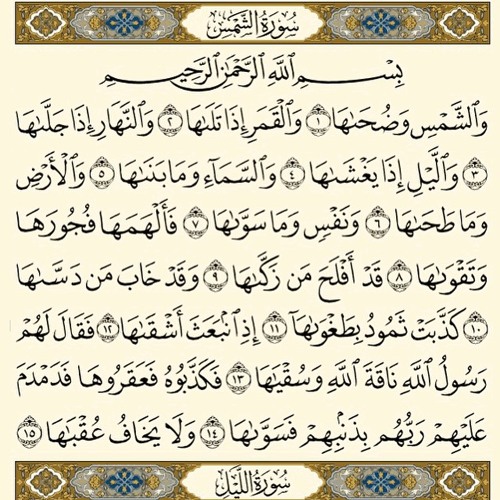 سُورَةُ الشَّمْسِ
بِسْمِ ٱللَّهِ ٱلرَّحْمَٰنِ ٱلرَّحِيمِ
وَٱلشَّمْسِ وَضُحَىٰهَا ١ وَٱلْقَمَرِ إِذَا تَلَىٰهَا ٢ وَٱلنَّهَارِ إِذَا جَلَّىٰهَا
٣ وَٱلَّيْلِ إِذَا يَغْشَىٰهَا ٤ وَٱلسَّمَآءِ وَمَا بَنَىٰهَا ٥ وَٱلْأَرْضِ
وَمَا طَحَىٰهَا ٦ وَنَفْسٍ وَمَا سَوَّىٰهَا ٧ فَأَلْهَمَهَا فُجُورَهَا
وَتَقْوَىٰهَا ٨ قَدْ أَفْلَحَ مَن زَكَّىٰهَا ٩ وَقَدْ خَابَ مَن دَسَّىٰهَا
١٠ كَذَّبَتْ ثَمُودُ بِطَغْوَىٰهَآ ١١ إِذِ ٱنۢبَعَثَ أَشْقَىٰهَا ١٢ فَقَالَ لَهُمْ
رَسُولُ ٱللَّهِ نَاقَةَ ٱللَّهِ وَسُقْيَٰهَا ١٣ فَكَذَّبُوهُ فَعَقَرُوهَا فَدَمْدَمَ
عَلَيْهِمْ رَبُّهُم بِذَنۢبِهِمْ فَسَوَّىٰهَا ١٤ وَلَا يَخَافُ عُقْبَٰهَا ١٥
سُورَةُ اللَّيْلِ